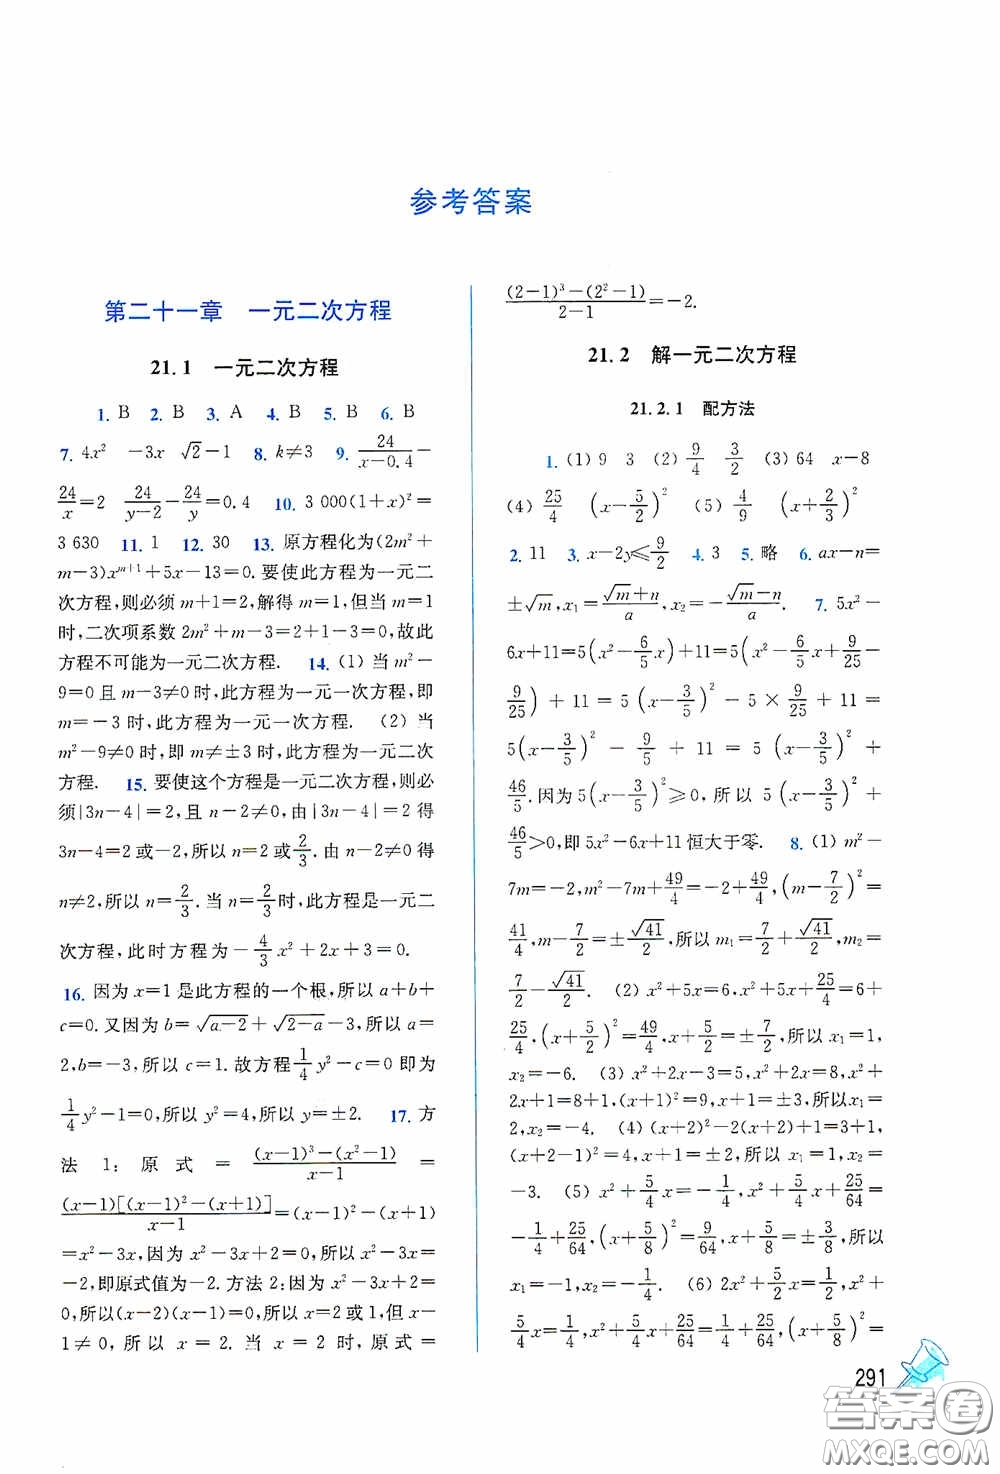 参考答案
第二十一章 一元二次方程
21.1 一元二次方程
1. B 2. B 3. A 4. B 5. B 6. B
7. 4x² －3x √2－1 8. k≠3 9. 24/(x－0.4)－
24/x＝2 24/(y－2)－24/y＝0.4 10. 3 000(1＋x)²＝
3 630 11. 1 12. 30 13. 原方程化为(2m²＋
m－3)x^(m＋1)＋5x－13＝0.要使此方程为一元二
次方程,则必须 m＋1＝2,解得 m＝1,但当 m＝1
时,二次项系数 2m²＋m－3＝2＋1－3＝0,故此
方程不可能为一元二次方程. 14. (1) 当 m²－
9＝0 且 m－3≠0 时,此方程为一元一次方程,即
m＝－3 时,此方程为一元一次方程. (2) 当
m²－9≠0 时,即 m≠±3 时,此方程为一元二次
方程. 15. 要使这个方程是一元二次方程,则必
须|3n－4|＝2,且 n－2≠0,由|3n－4|＝2 得
3n－4＝2或－2,所以 n＝2或2/3.由 n－2≠0 得
n≠2,所以 n＝2/3.当 n＝2/3时,方程是一元二
次方程,此时方程为－4/3x²＋2x＋3＝0.
16. 因为 x＝1 是此方程的一个根,所以 a＋b＋
c＝0.又因为 b＝√(a－2)＋√(2－a)－3,所以 a＝
2,b＝－3,所以 c＝1.故方程1/4y²－c＝0 即为
1/4y²－1＝0,所以 y²＝4,所以 y＝±2. 17. 方
法 1:原式＝((x－1)³－(x²－1))/(x－1)＝
((x－1)[(x－1)²－(x＋1)])/(x－1)＝(x－1)²－(x＋1)
＝x²－3x,因为 x²－3x＋2＝0,所以 x²－3x＝
－2,即原式值为－2.方法 2:因为 x²－3x＋2＝
0,所以(x－2)(x－1)＝0,所以 x＝2 或 1,但 x－
1≠0,所以 x＝2.当 x＝2 时,原式＝
((2－1)³－(2²－1))/(2－1)＝－2.
21.2 解一元二次方程
21.2.1 配方法
1. (1) 9 3 (2) 9/4 3/2 (3) 64 x－8
(4) 25/4 (x－5/2)² (5) 4/9 (x＋2/3)²
2. 11 3. x－2y≤9/2 4. 3 5. 略 6. ax－n＝
±√m,x₁＝(√m＋n)/a,x₂＝－(√m－n)/a. 7. 5x²－
6x＋11＝5(x²－6/5x)＋11＝5(x²－6/5x＋9/25－
9/25)＋11＝5(x－3/5)²－5×9/25＋11＝
5(x－3/5)²－9/5＋11＝5(x－3/5)²＋
46/5.因为 5(x－3/5)²≥0,所以 5(x－3/5)²＋
46/5＞0,即 5x²－6x＋11 恒大于零. 8. (1) m²－
7m＝－2,m²－7m＋49/4＝－2＋49/4,(m－7/2)²＝
41/4,m－7/2＝±√41/2,所以 m₁＝7/2＋√41/2,m₂＝
7/2－√41/2. (2) x²＋5x＝6,x²＋5x＋25/4＝6＋
25/4,(x＋5/2)²＝49/4,x＋5/2＝±7/2,所以 x₁＝1,
x₂＝－6. (3) x²＋2x－3＝5,x²＋2x＝8,x²＋
2x＋1＝8＋1,(x＋1)²＝9,x＋1＝±3,所以x₁＝
2,x₂＝－4. (4) (x＋2)²－2(x＋2)＋1＝3＋1,
(x＋2－1)²＝4,x＋1＝±2,所以 x₁＝1,x₂＝
－3. (5) x²＋5/4x＝－1/4,x²＋5/4x＋25/64＝
－1/4＋25/64,(x＋5/8)²＝9/64,x＋5/8＝±3/8,所以
x₁＝－1,x₂＝－1/4. (6) 2x²＋5/2x＝1/2,x²＋
5/4x＝1/4,x²＋5/4x＋25/64＝1/4＋25/64,(x＋5/8)²＝
291
答案卷
MXQE.COM